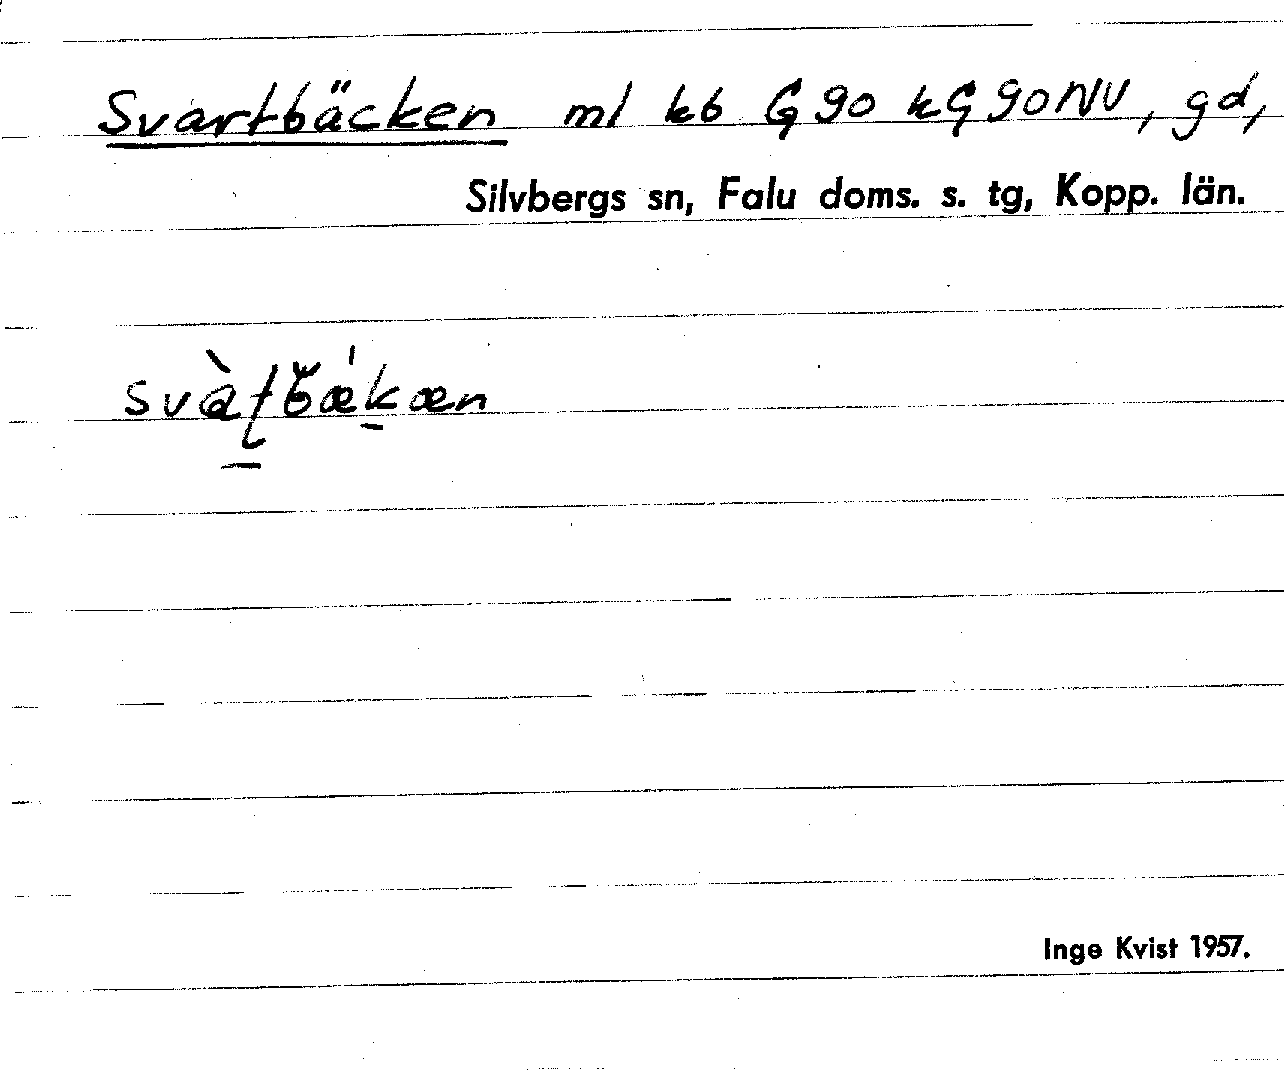 Svartbäcken ml kb G 90 kG 90NV, gd,
Silvbergs sn, Falu doms. s. tg, Kopp. län.
Inge Kvist 1957.